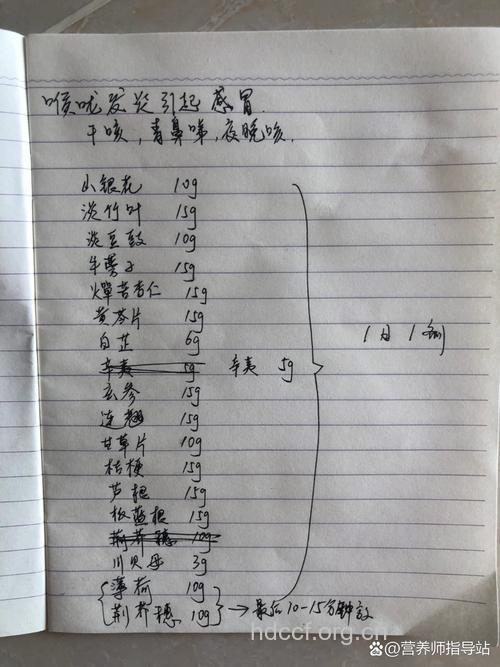 喉咙发炎引起感冒.
干咳,青鼻涕,夜晚咳.
山银花 10g
淡竹叶 15g
淡豆豉 10g
牛蒡子 15g
燀苦杏仁 15g
黄芩片 15g
白芷 6g
辛夷 5g 辛夷 5g
玄参 15g
连翘 15g
甘草片 10g
桔梗 15g
芦根 15g
板蓝根 15g
荆芥穗 10g
川贝母 3g
薄荷 10g
荆芥穗 10g → 最后10-15分钟放
1日1剂
hdccf.org.cn
@营养师指导站